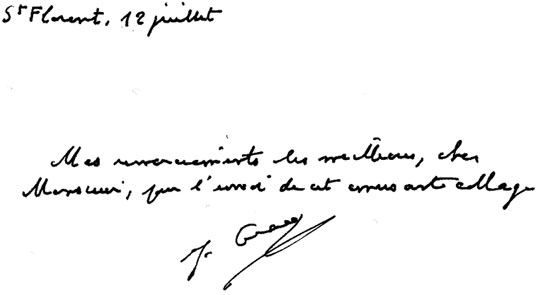 St Florent, 12 juillet
Mes remerciements les meilleurs, cher
Monsieur, pour l'envoi de cet amusant collage
J. Gracq